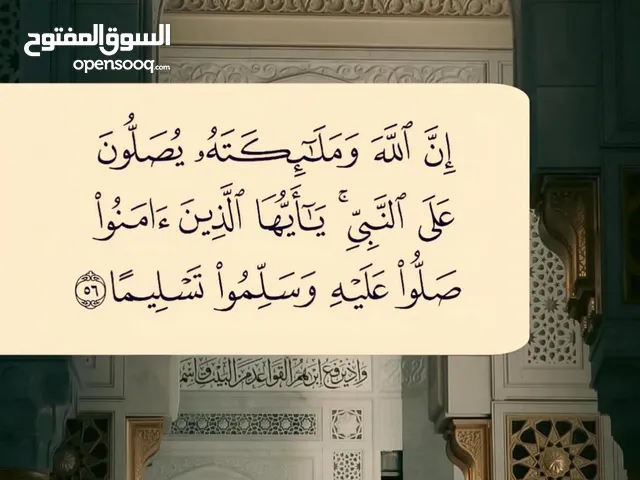 السوق المفتوح
opensooq.com
إِنَّ ٱللَّهَ وَمَلَـٰٓئِكَتَهُۥ يُصَلُّونَ
عَلَى ٱلنَّبِىِّ ۚ يَـٰٓأَيُّهَا ٱلَّذِينَ ءَامَنُوا۟
صَلُّوا۟ عَلَيْهِ وَسَلِّمُوا۟ تَسْلِيمًا ٥٦
واذ يرفع ابرهم القواعد من البيت واسم